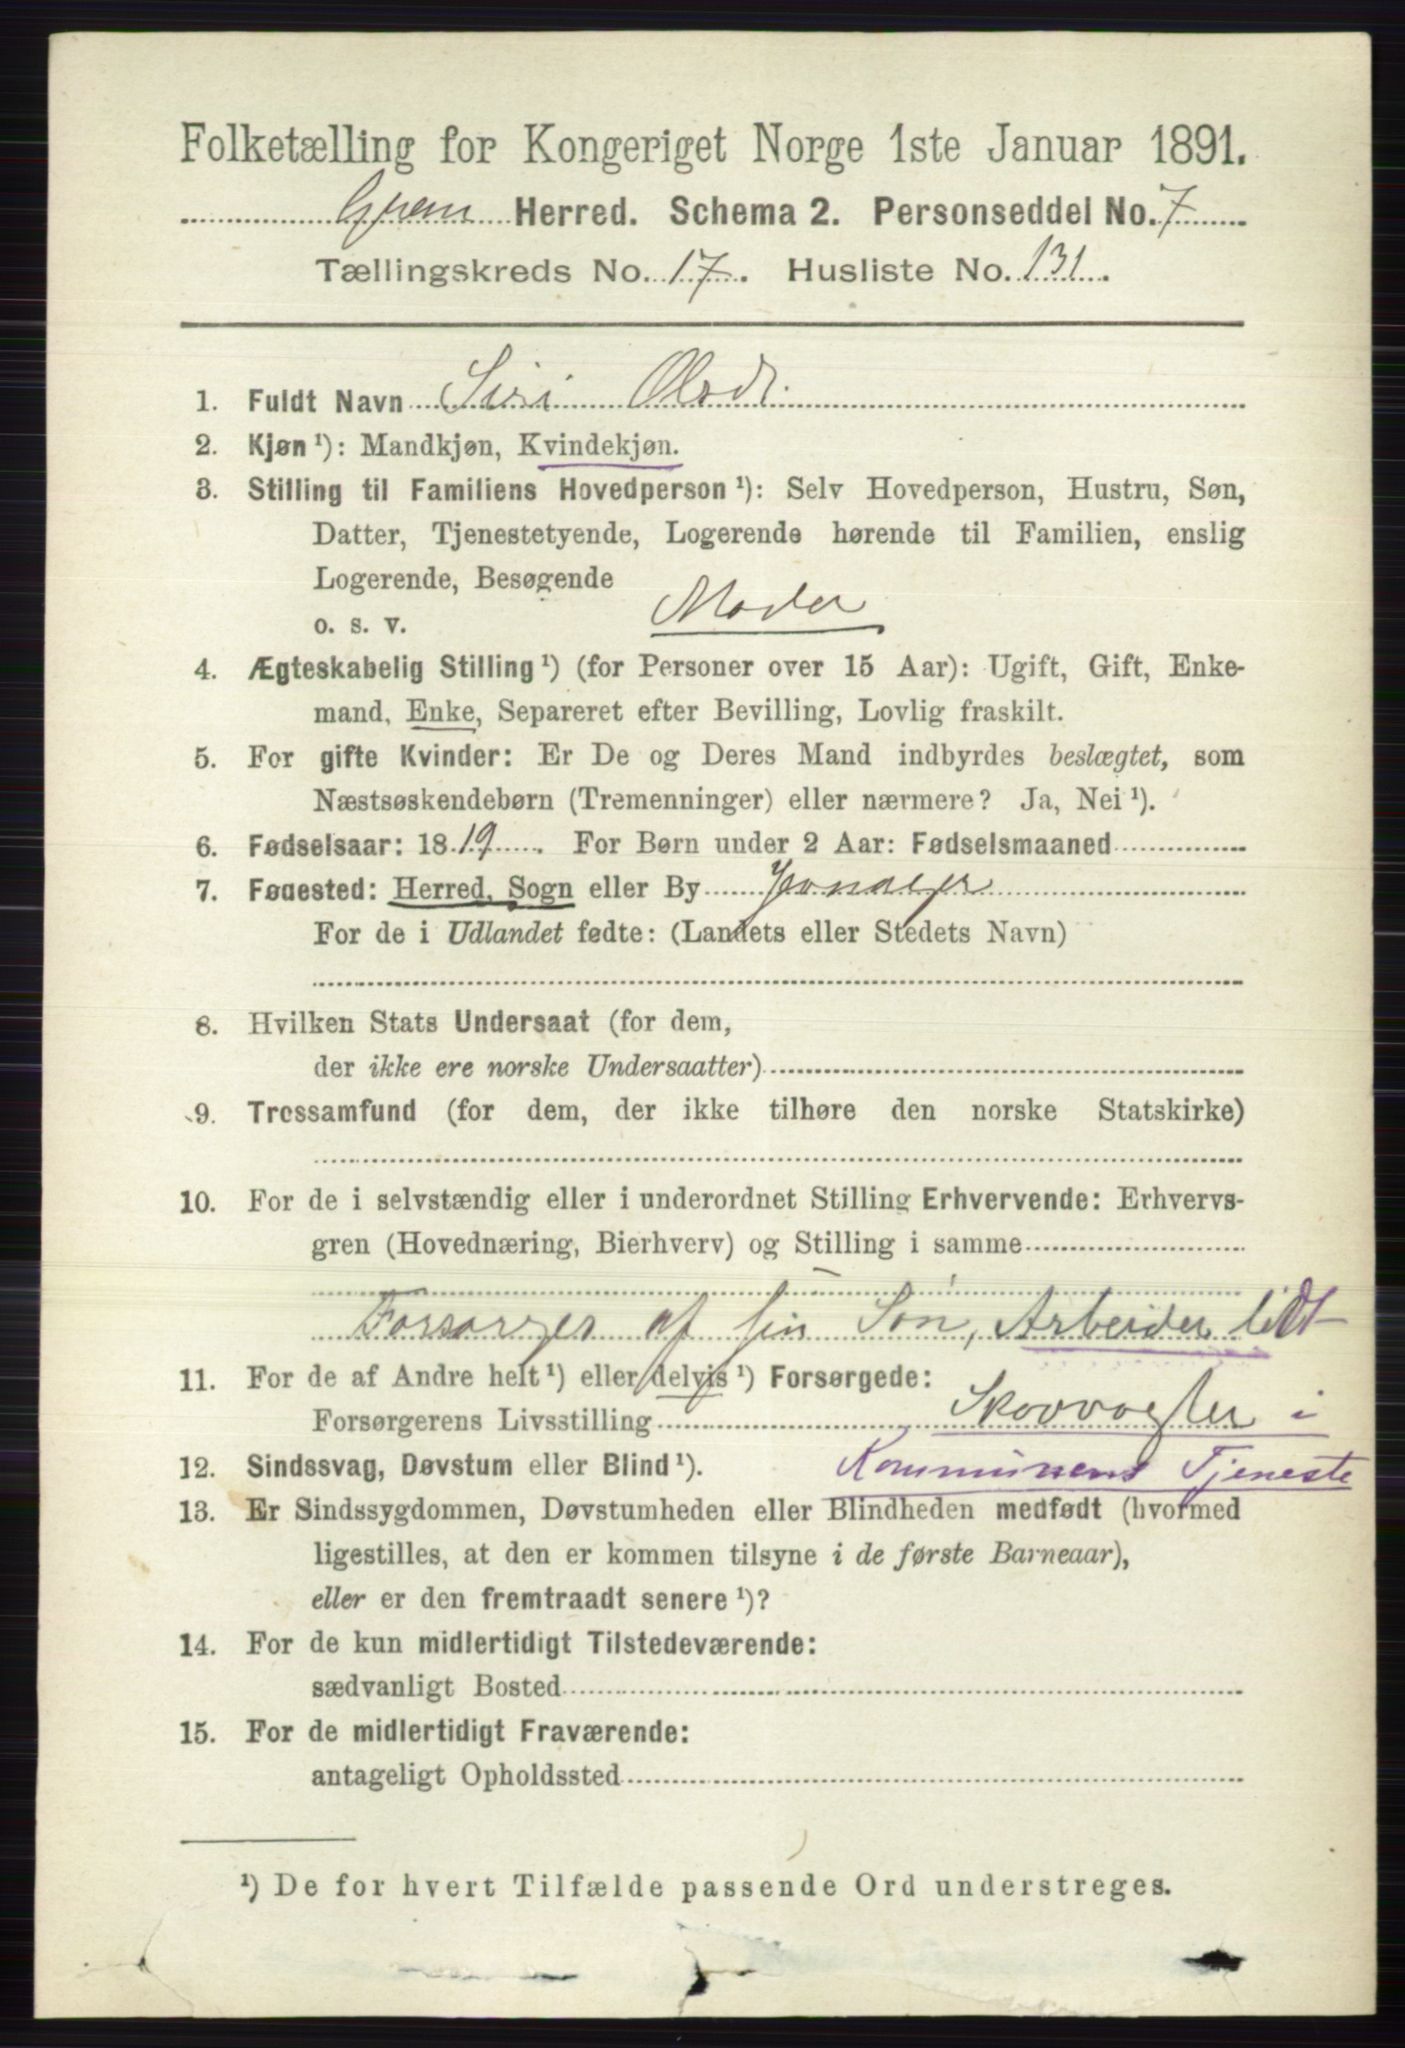 Folketælling for Kongeriget Norge 1ste Januar 1891.
Gran Herred. Schema 2. Personseddel No. 7
Tællingskreds No. 17. Husliste No. 131.
1. Fuldt Navn Siri Olsdt.
2. Kjøn ¹): Mandkjøn, Kvindekjøn.
3. Stilling til Familiens Hovedperson ¹): Selv Hovedperson, Hustru, Søn,
Datter, Tjenestetyende, Logerende hørende til Familien, enslig
Logerende, Besøgende
o. s. v. Moder
4. Ægteskabelig Stilling ¹) (for Personer over 15 Aar): Ugift, Gift, Enke-
mand, Enke, Separeret efter Bevilling, Lovlig fraskilt.
5. For gifte Kvinder: Er De og Deres Mand indbyrdes beslægtet, som
Næstsøskendebørn (Tremenninger) eller nærmere? Ja, Nei ¹).
6. Fødselsaar: 1819. For Børn under 2 Aar: Fødselsmaaned
7. Fødested: Herred, Sogn eller By Jevnaker
For de i Udlandet fødte: (Landets eller Stedets Navn)
8. Hvilken Stats Undersaat (for dem,
der ikke ere norske Undersaatter)
9. Trossamfund (for dem, der ikke tilhøre den norske Statskirke)
10. For de i selvstændig eller i underordnet Stilling Erhvervende: Erhvervs-
gren (Hovednæring, Bierhverv) og Stilling i samme
Forsørges af sin Søn, Arbeider lidt
11. For de af Andre helt ¹) eller delvis ¹) Forsørgede:
Forsørgerens Livsstilling Skovvogter i
12. Sindssvag, Døvstum eller Blind ¹). Kommunens Tjeneste
13. Er Sindssygdommen, Døvstumheden eller Blindheden medfødt (hvormed
ligestilles, at den er kommen tilsyne i de første Barneaar),
eller er den fremtraadt senere ¹)?
14. For de kun midlertidigt Tilstedeværende:
sædvanligt Bosted
15. For de midlertidigt Fraværende:
antageligt Opholdssted
¹) De for hvert Tilfælde passende Ord understreges.